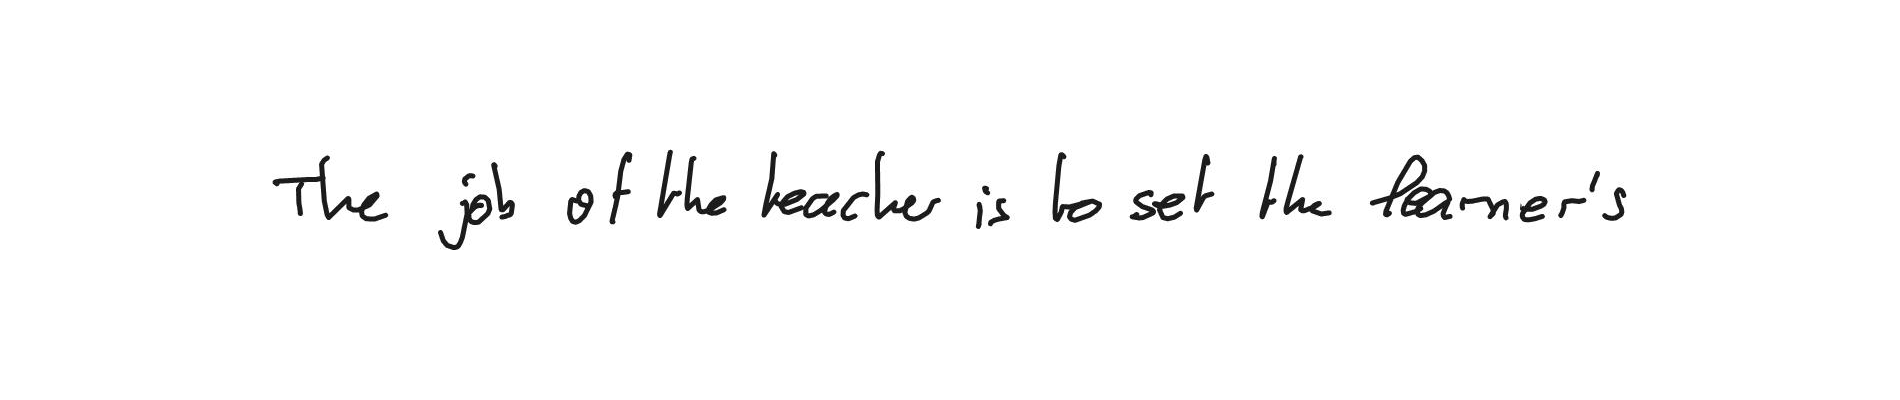 The job of the teacher is to set the learner's